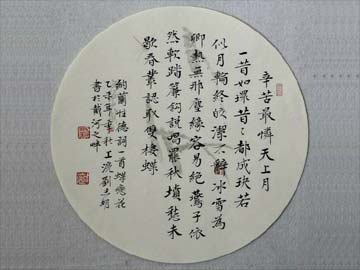 辛苦最憐天上月
一昔如環昔〻都成玦若
似月輪終皎潔不辭冰雪為
卿熱無那塵緣容易絕燕子依
然軟踏簾鈎說唱罷秋墳愁未
歇春叢認取雙棲蝶
納蘭性德詞一首蝶戀花
乙未年季秋上浣劉志明
書於河之畔